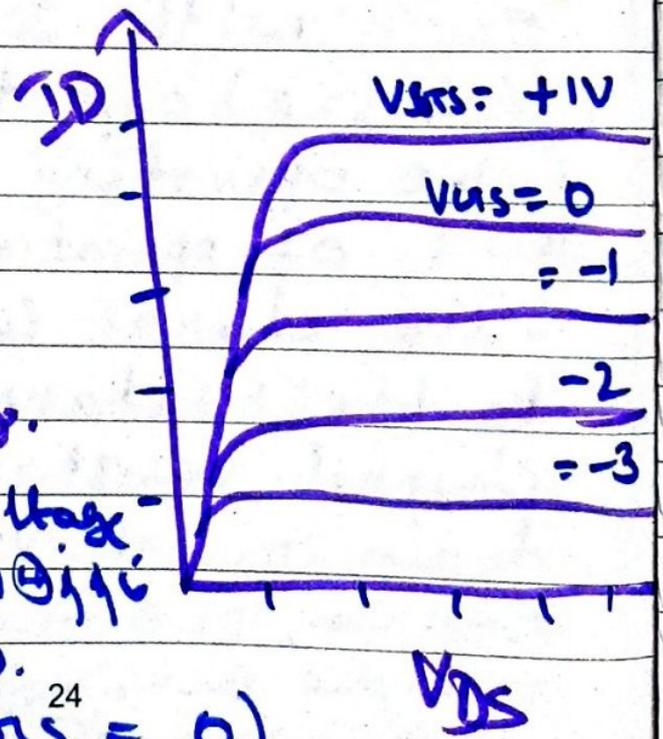 ID
VGS= +1V
VGS= 0
= -1
-2
= -3
ltage
VDS
24
= 0)